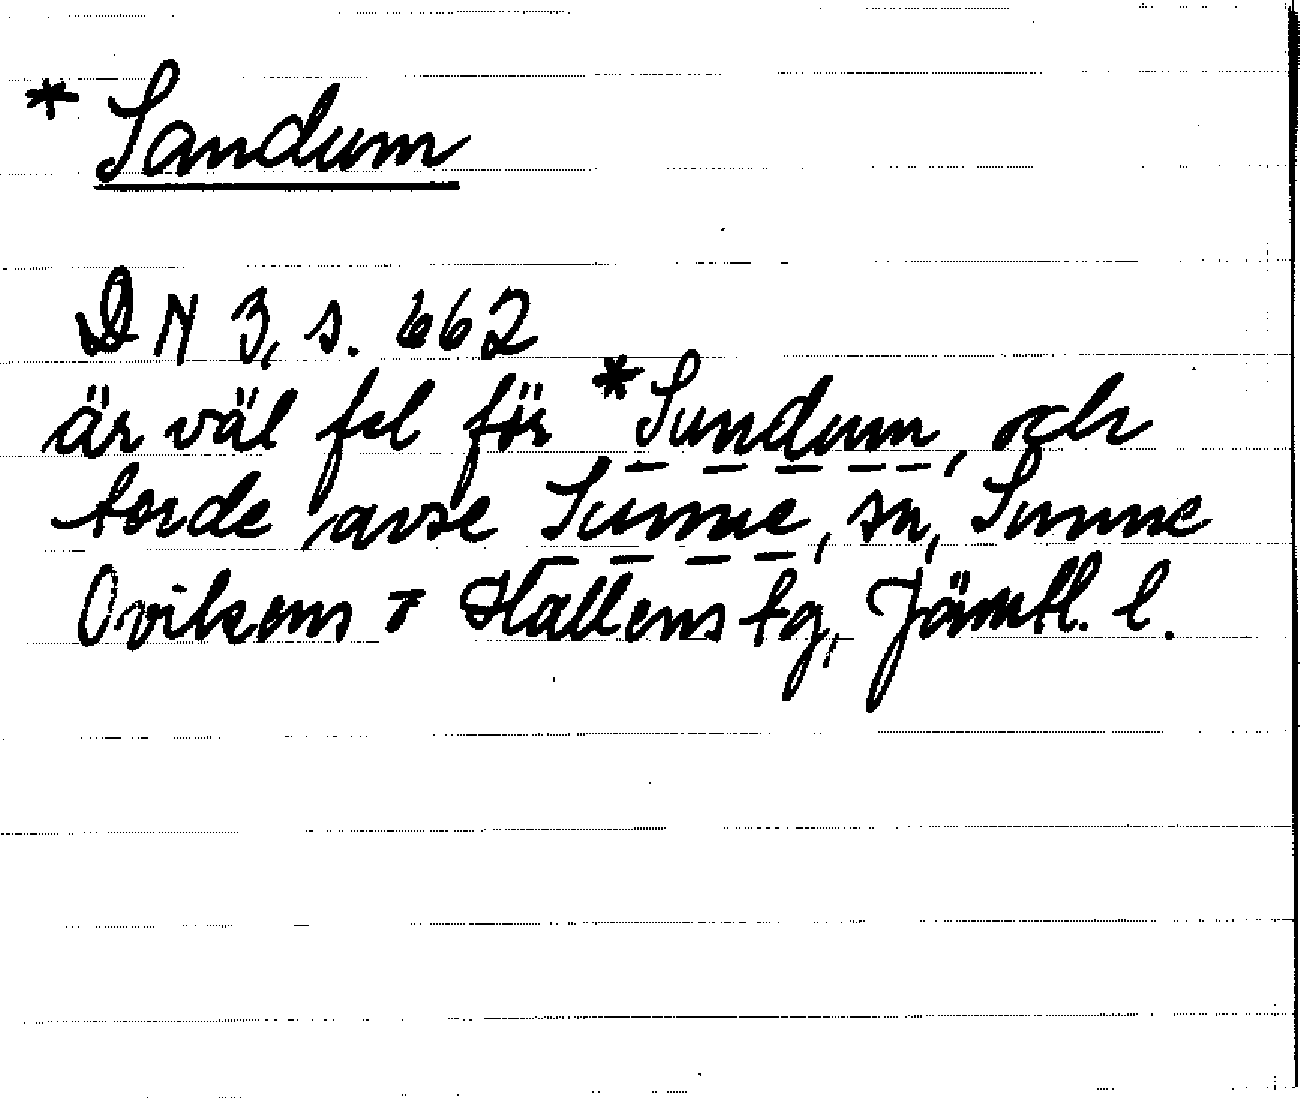 * Sandum
DN 3, s. 662
är väl fel för *Sundum, och
torde avse Sunne, sn, Sunne
Ovikens o Hallens tg, Jämtl. l.